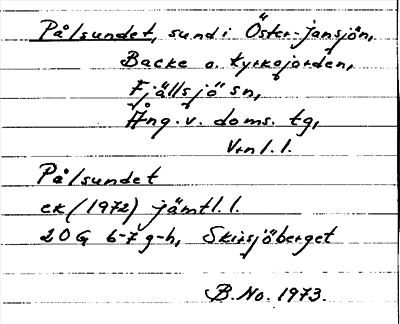 Pålsundet, sund i Öster-Jansjön,
Backe o. Kyrkojorden,
Fjällsjö sn,
Ång. v. doms. tg,
Vrnl. l.
Pålsundet
ek (1972) jämtl. l.
20G 6-7 g-h, Skirsjöberget
B. No. 1973.